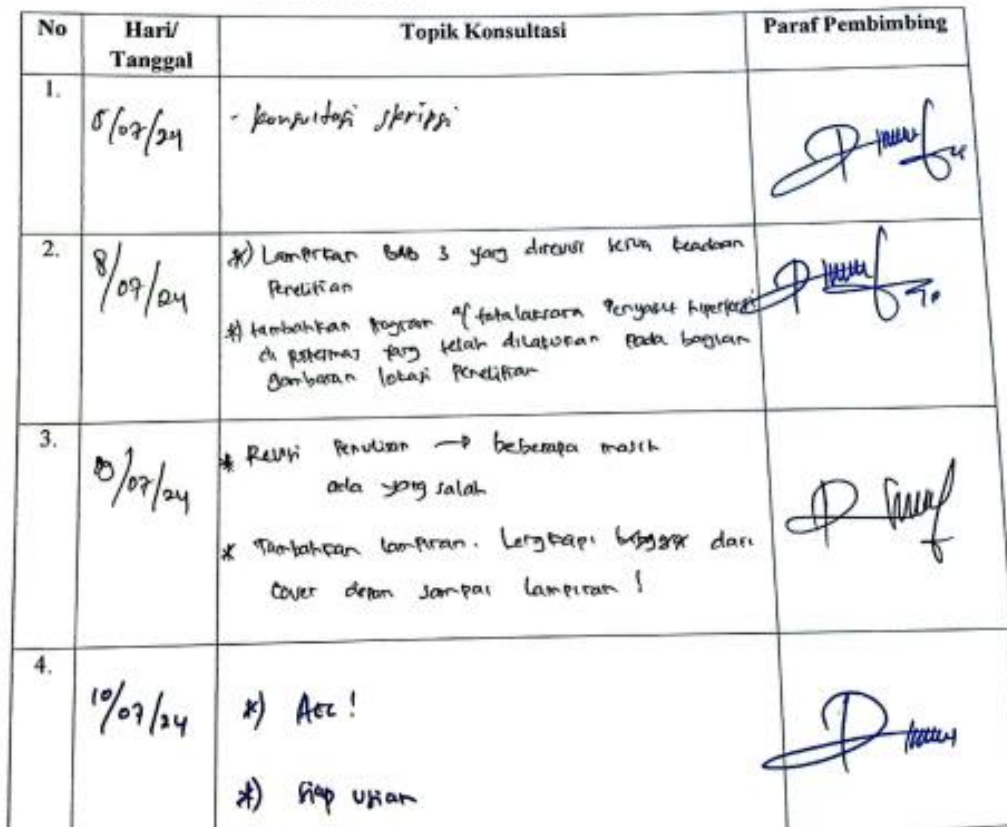 No Hari/ Topik Konsultasi Paraf Pembimbing
Tanggal
1.
5/07/24 - konsultasi skripsi
2.
8/07/24 *) Lampirkan BAB 3 yang direvisi keadaan
Penelitian
*) tambahkan program penyakit hipertensi
di puskesmas yang telah dilakukan pada bagian
gambaran lokasi Penelitian
3.
09/07/24 * Revisi Penulisan → beberapa masih
ada yang salah
* Tambahkan lampiran. Lengkapi dari
Cover depan sampai Lampiran !
4.
10/07/24 *) Acc !
*) Siap Ujian